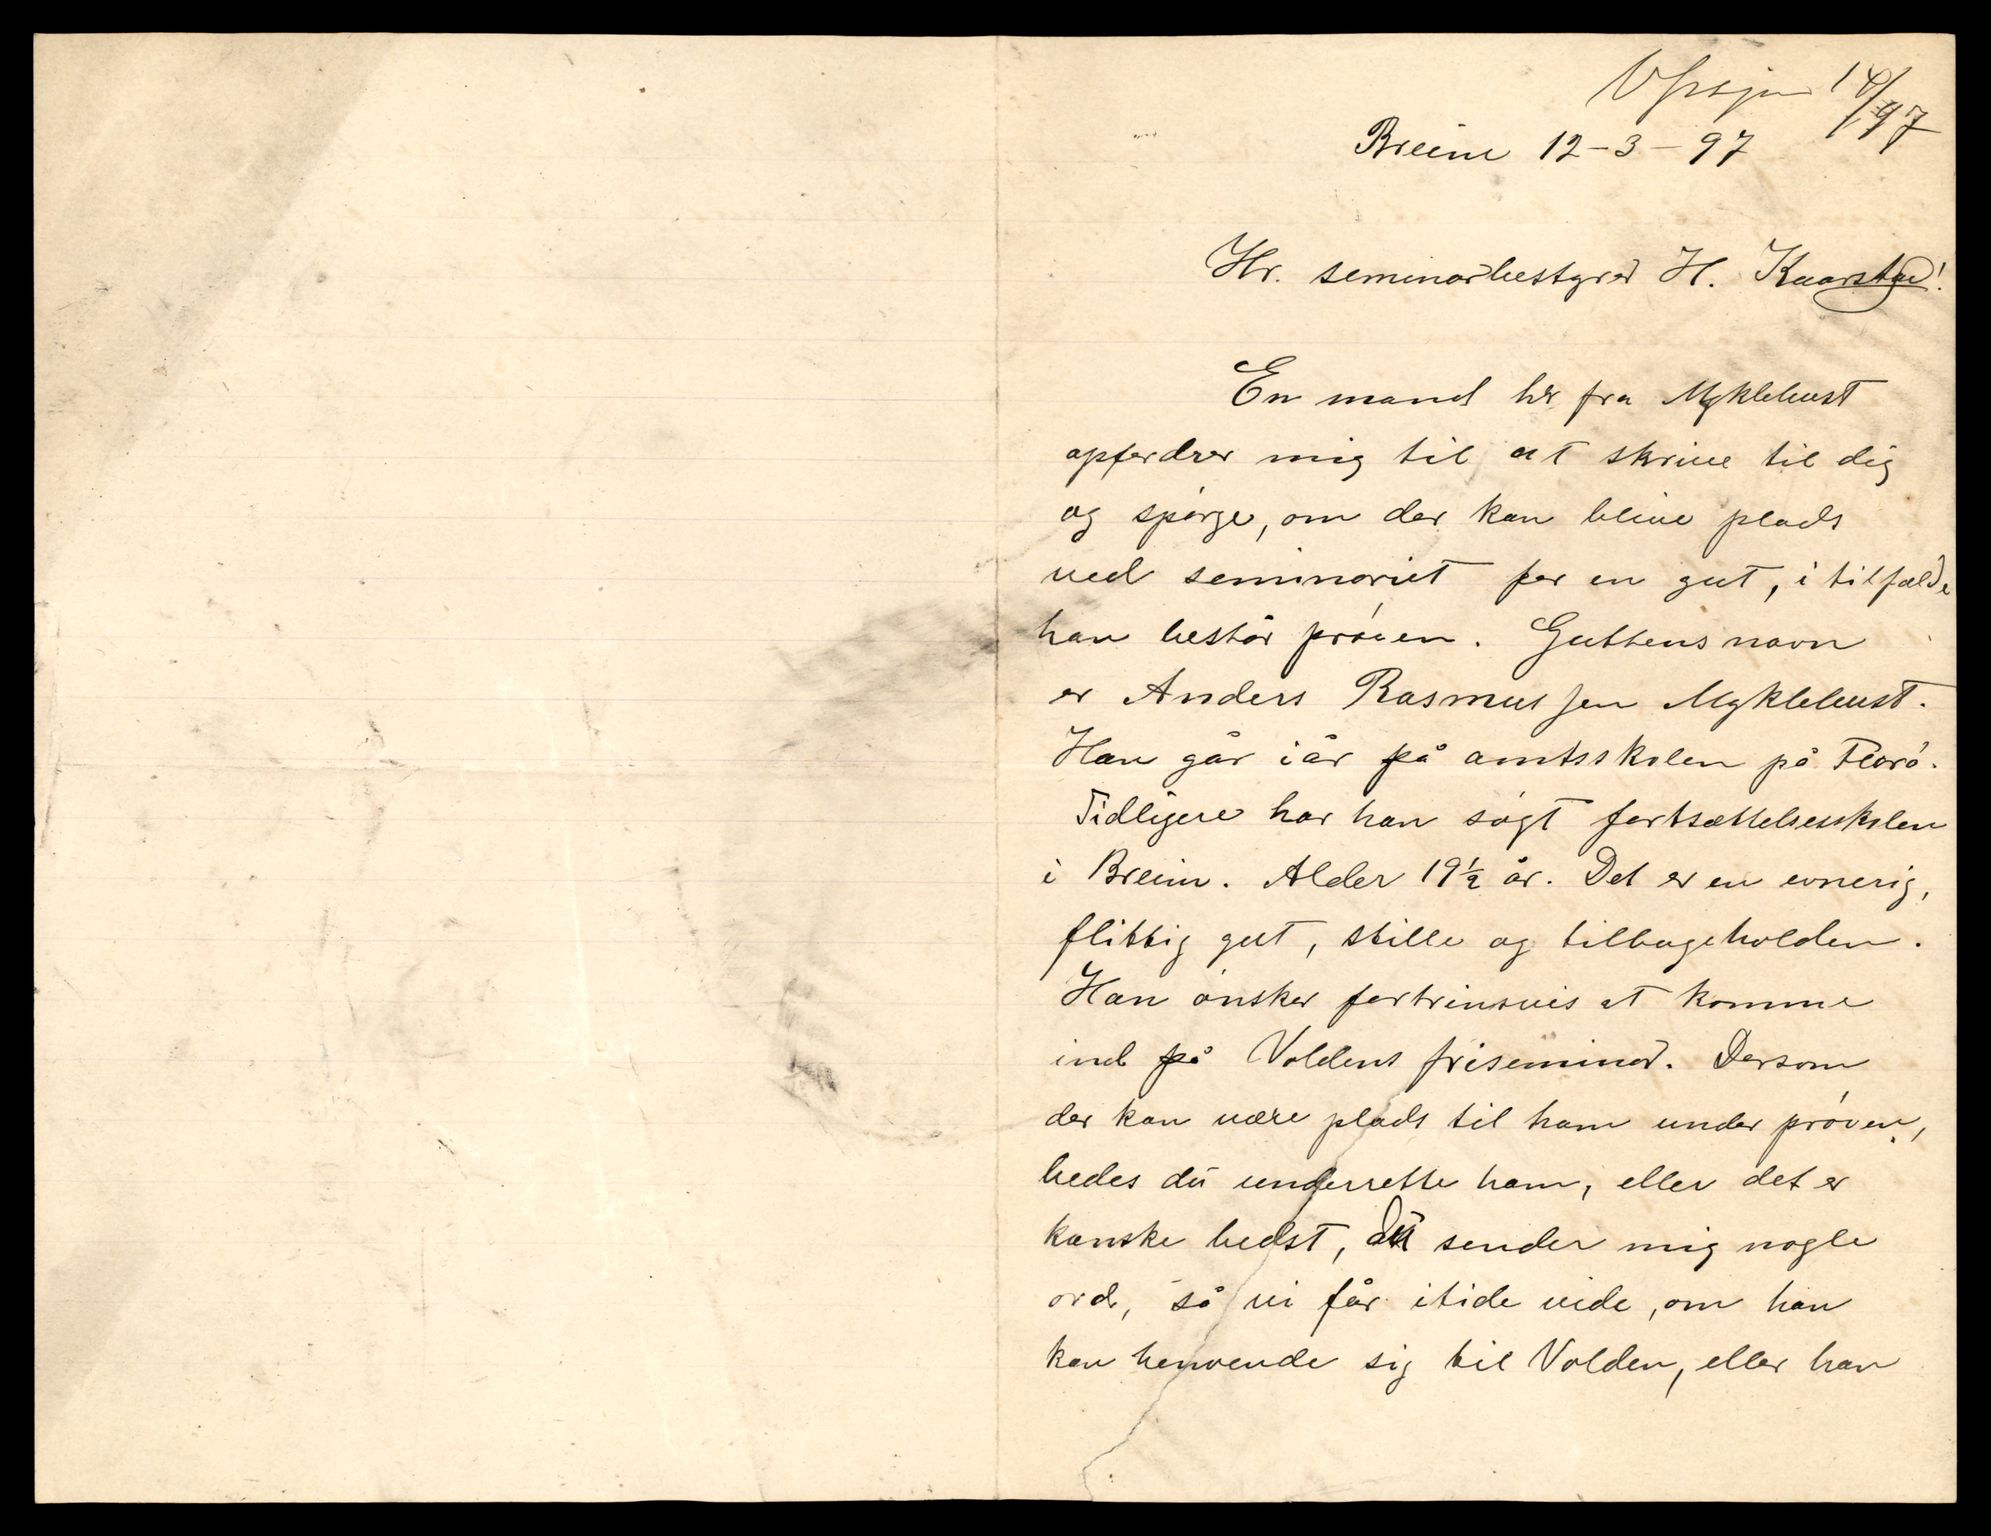 Breim 12-3-97
Hr. seminarbestyrer H. Kaarstad!
En mand her fra Myklebust
opfordrer mig til at skrive til dig
og spørge, om der kan blive plads
ved seminariet for en gut, i tilfælde
han består prøven. Guttens navn
er Anders Rasmussen Myklebust.
Han går iår på amtsskolen på Florø.
Tidligere har han søgt fortsættelsesskolen
i Breim. Alder 19½ år. Det er en evnerig,
flittig gut, stille og tilbageholden.
Han ønsker fortrinsvis at komme
ind på Voldens friseminar. Dersom
der kan være plads til ham under prøven,
bedes du underrette ham, eller det er
kanske bedst, du sender mig nogle
ord, så vi får itide vide, om han
kan henvende sig til Volden, eller han